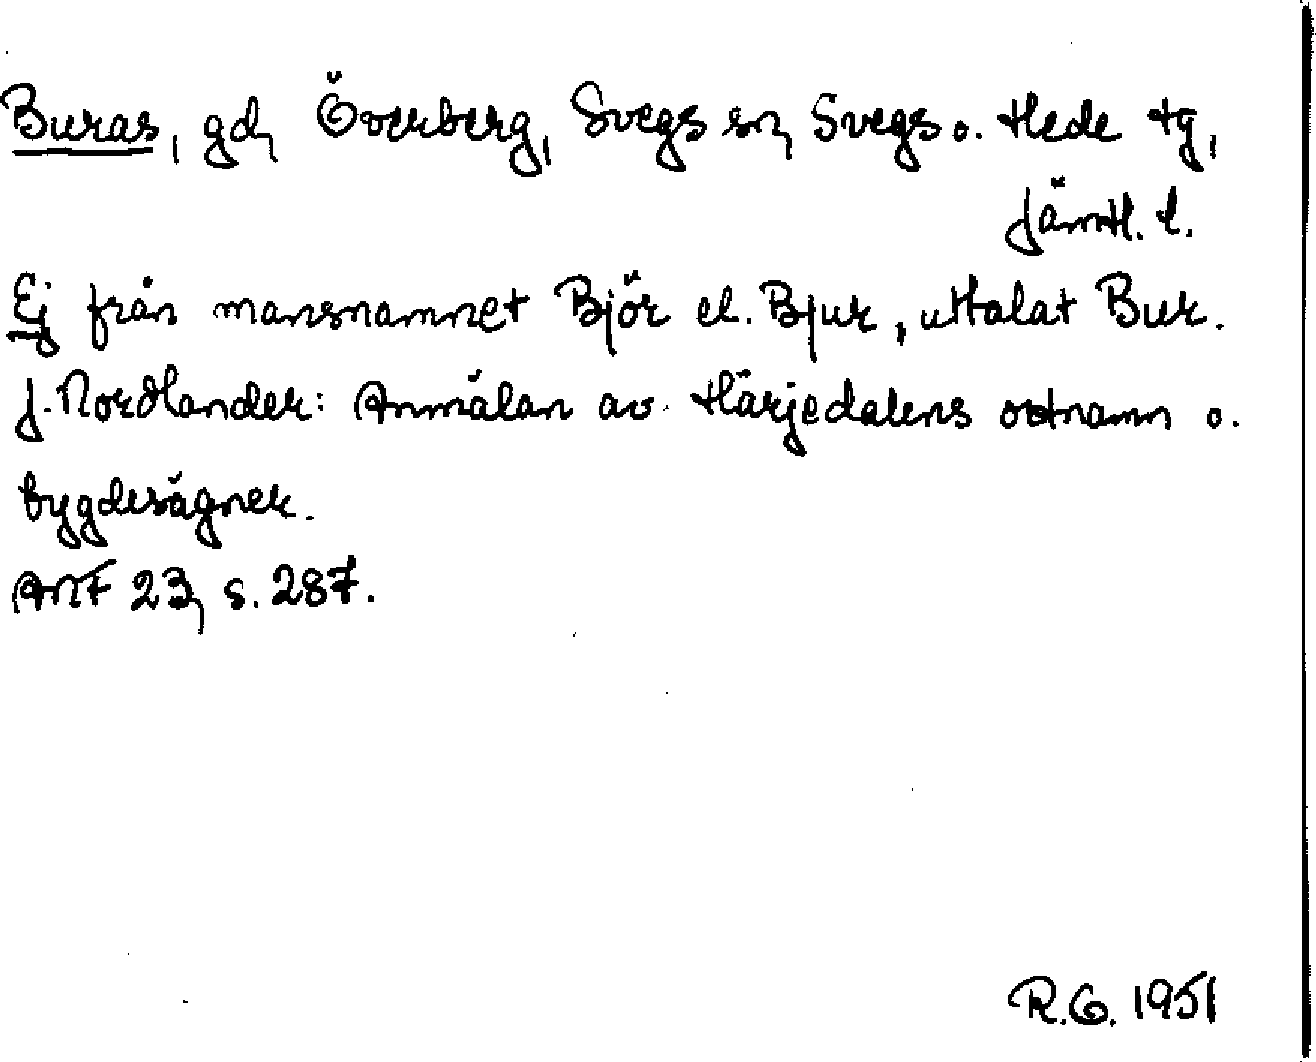 Buras, gd, Överberg, Svegs sn, Svegs o. Hede tg,
Jämtl. l.
Ej från mansnamnet Björ el. Bjur, uttalat Bur.
J. Nordlander: Anmälan av Härjedalens ortnamn o.
bygdesägner.
ANF 23, s. 287.
R.G. 1951